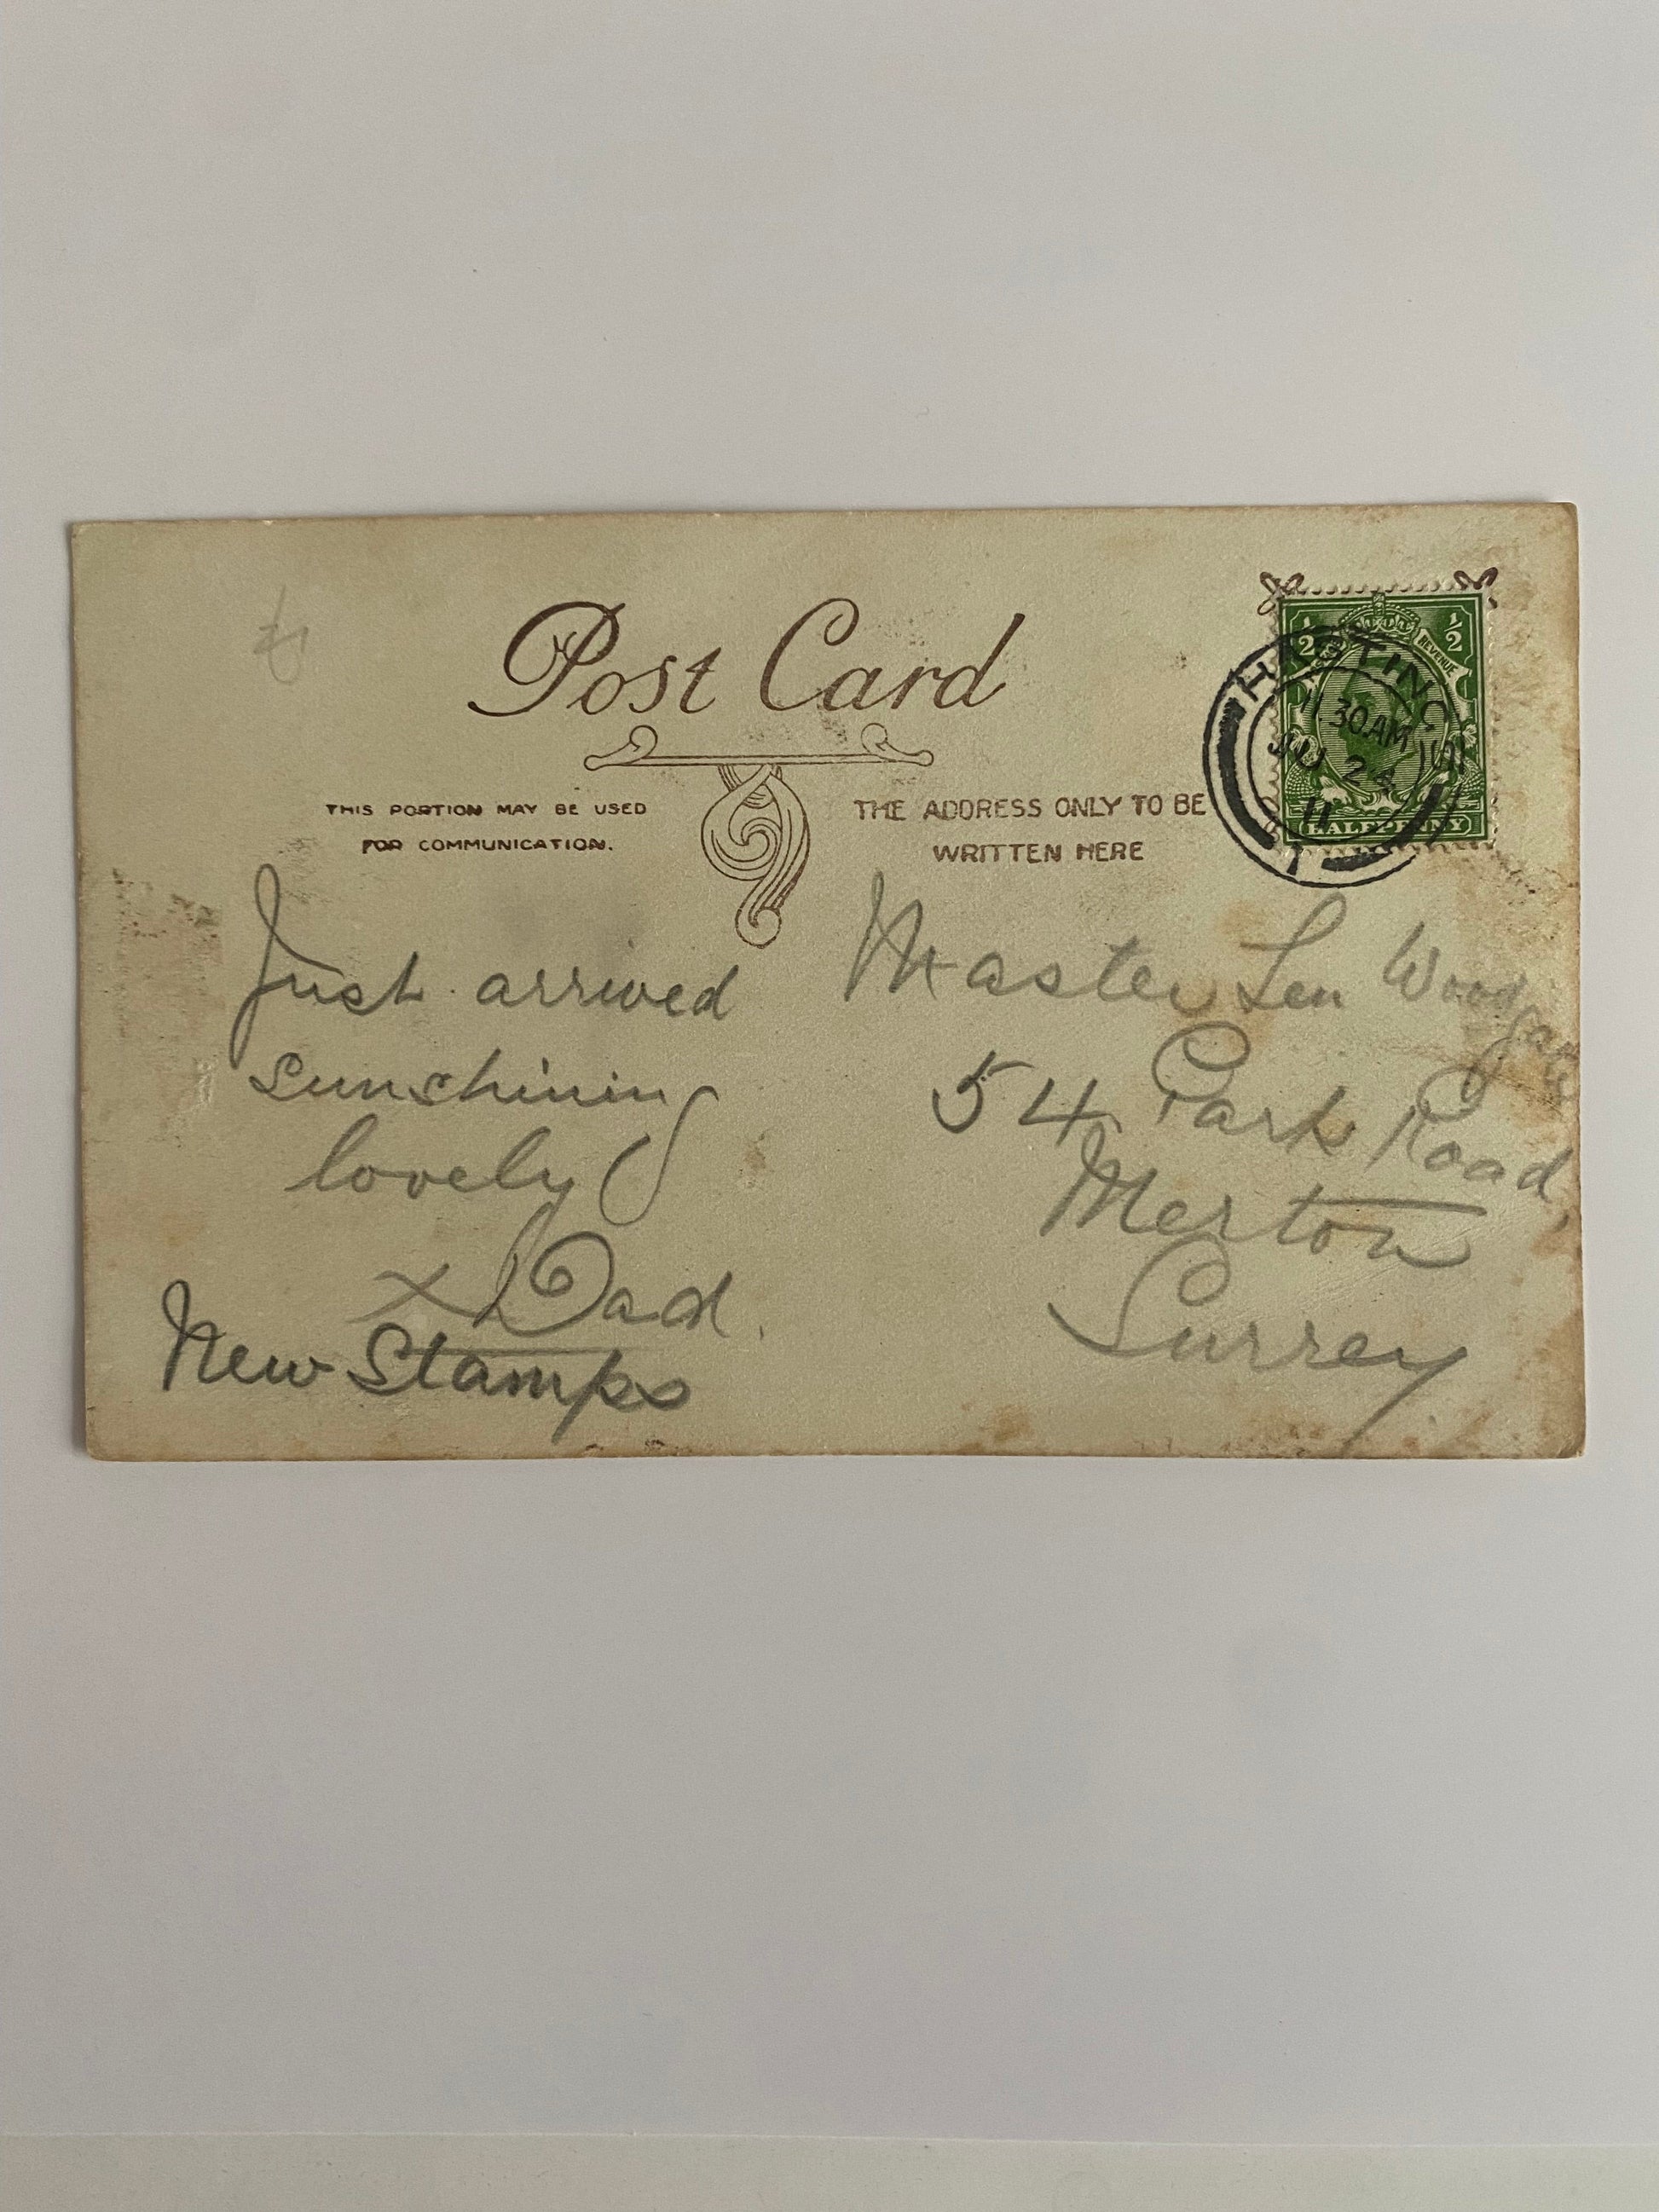 Post Card
THIS PORTION MAY BE USED
FOR COMMUNICATION.
THE ADDRESS ONLY TO BE
WRITTEN HERE
1/2
1/2
REVENUE
HALFPENNY
HASTINGS
30 AM
JU 24
11
Just arrived
sunshining
lovely
x Dad.
New Stamps
Master Len
54 Park Road,
Merton
Surrey